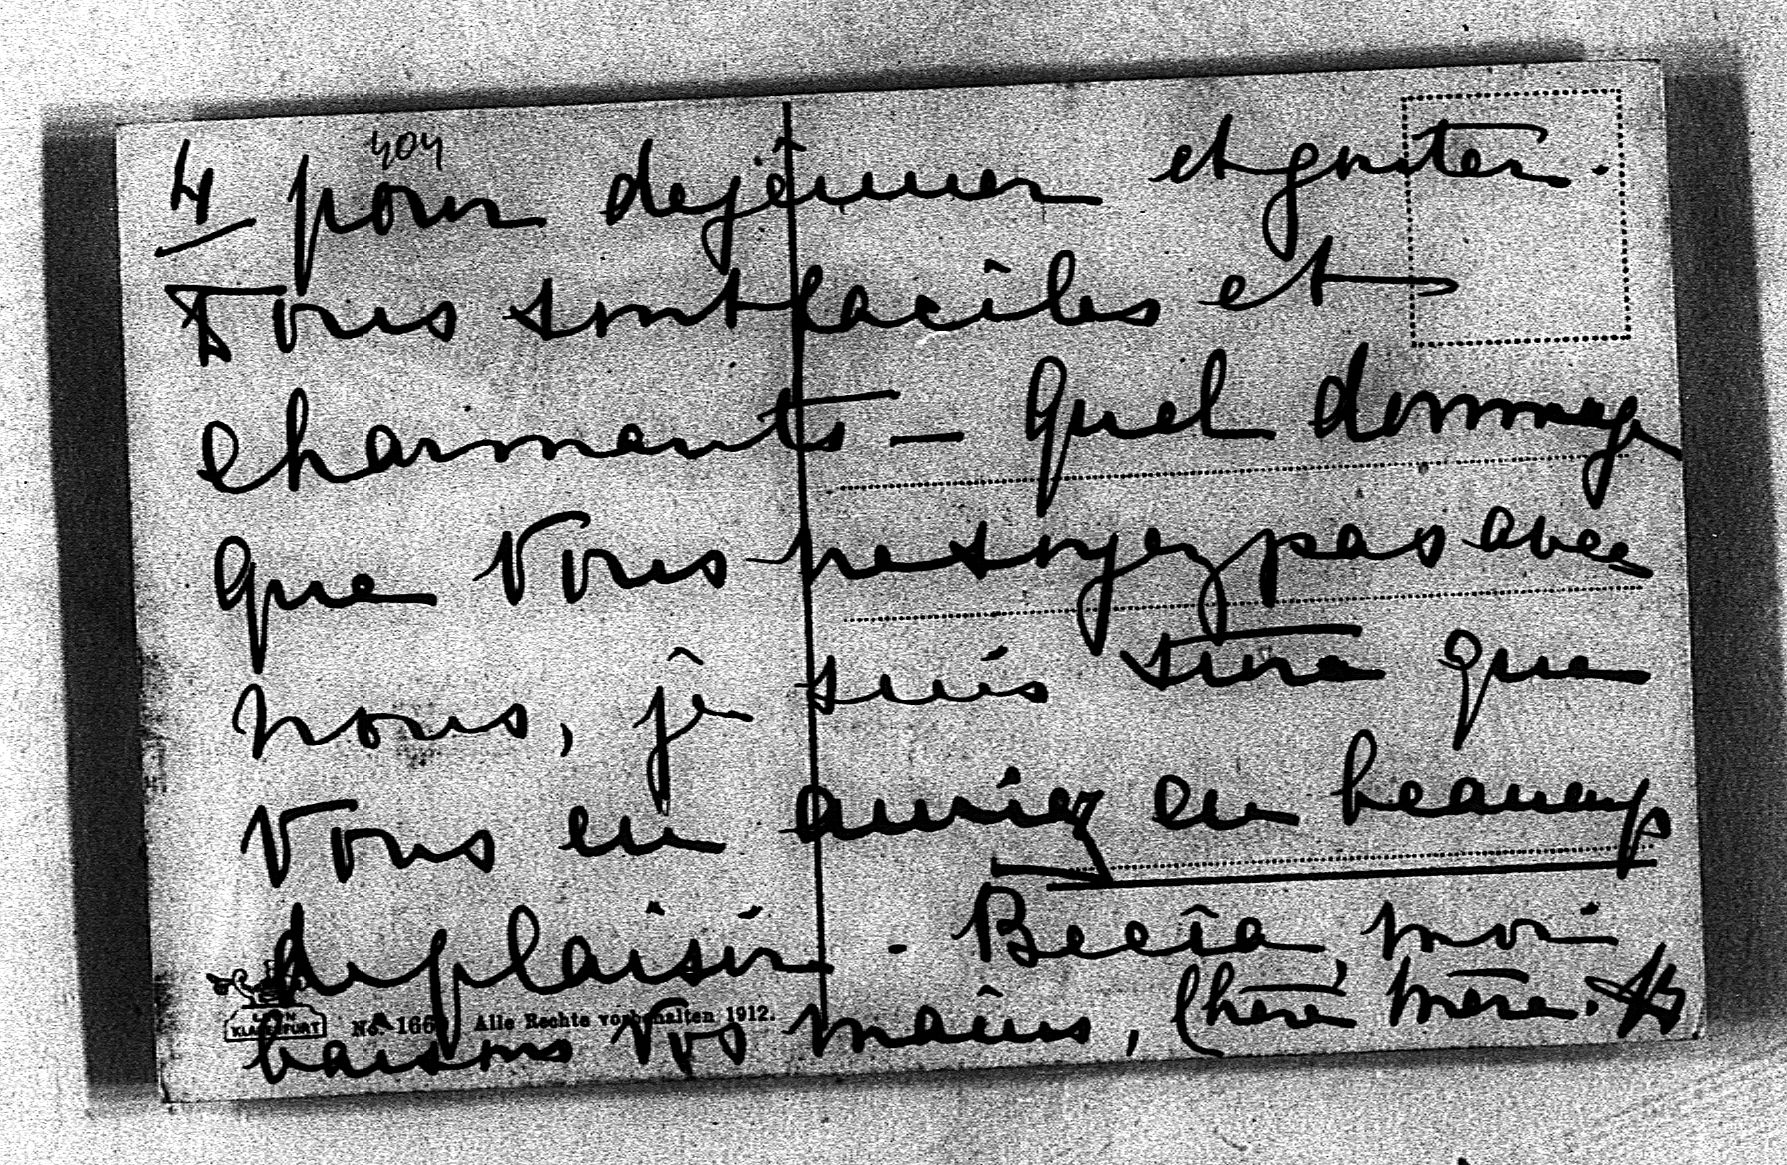 404
4 pour dejêuner et gouter.
Tous sont faciles et
charmants – Quel dommage
que Vous ne soyez pas avec
nous, je suis sûre que
Vous en auriez eu beaucoup
de plaisir. Becca, moi
baisons Vos mains, Chère Mère.
KLAGENFURT No. 166 Alle Rechte vorbehalten 1912.